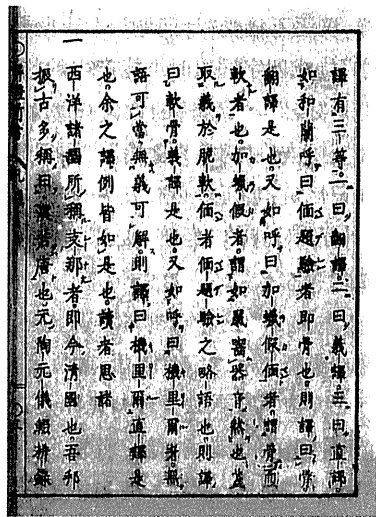 譯有三等一曰飜譯二曰義譯三曰直譯
如和蘭呼曰偭題驗者即骨也則譯曰骨
飜譯是也又如呼曰加蠟假偭者謂骨而
軟者也加蠟假者謂如鼠囓器音然也蓋
取義於脆軟偭者偭題驗之略語也則譯
曰軟骨義譯是也又如呼曰機里爾者無
語可當無義可解則譯曰機里爾直譯是
也余之譯例皆如是也讀者思諸
一西洋諸國所稱支那者即今清國也吾邦
振古多稱曰漢若唐也元陶元儀輟耕錄